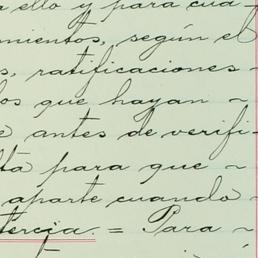 ello y para cua-
mientos, según el
s, ratificaciones-
los que hayan -
e antes de verifi-
lta para que -
aparte cuando
tercia. = Para -